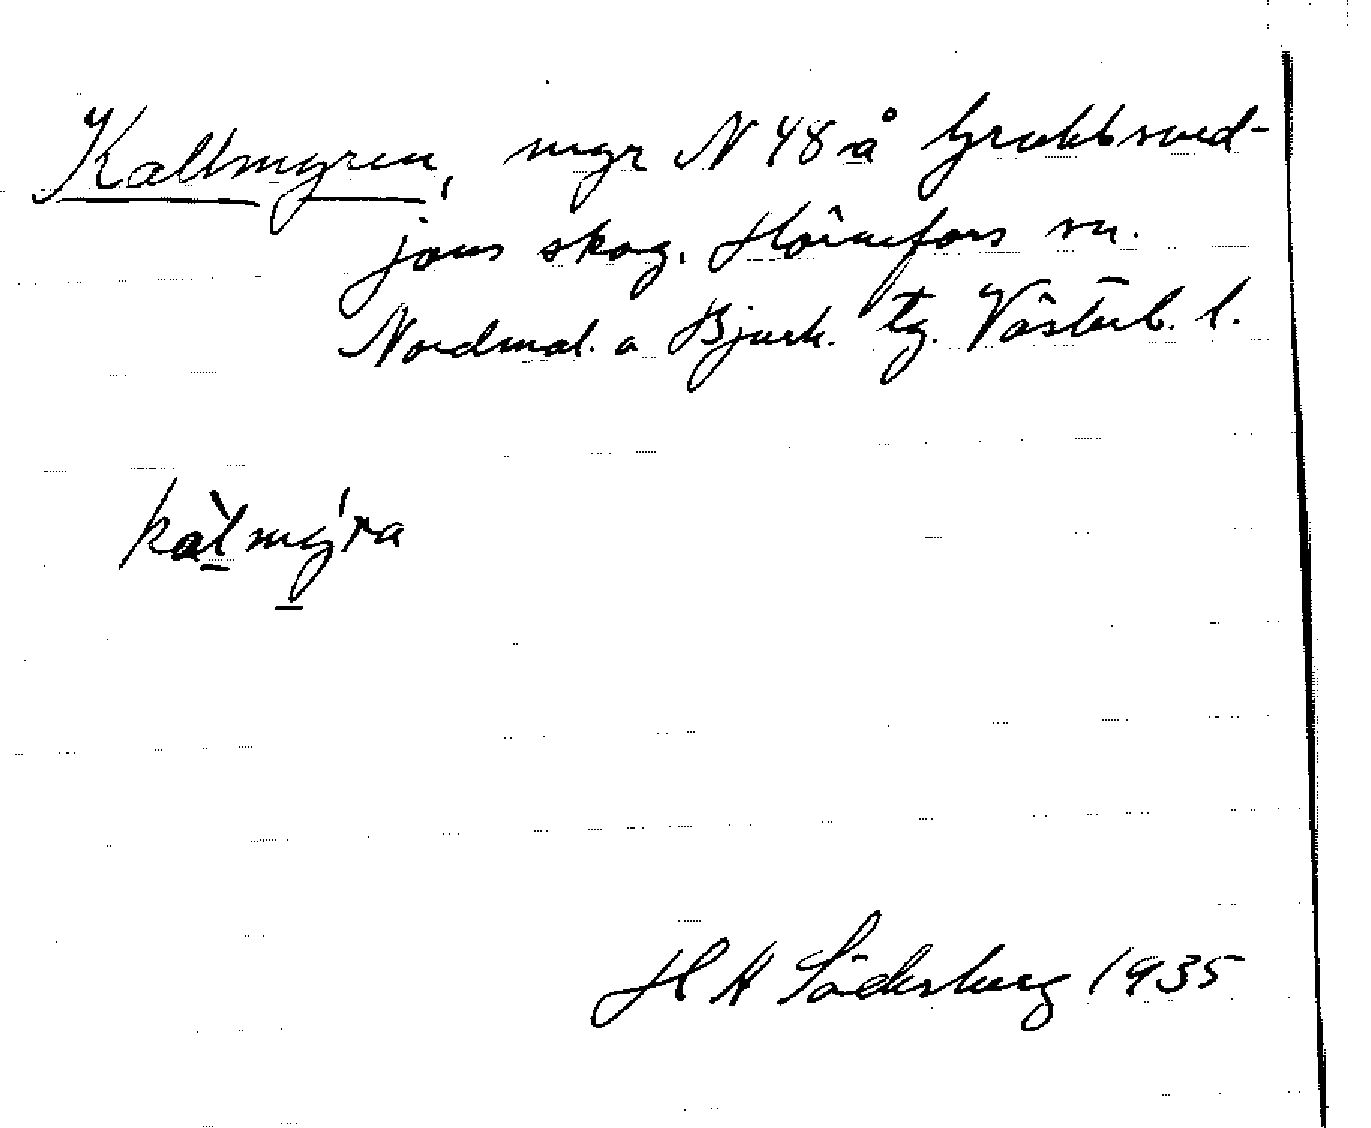 Kallmyren, myr N 48 å Grubbsved-
jans skog. Hörnefors sn.
Nordmal. o Bjurh. tg. Västerb. l.
kàlmýra
H H Söderberg 1935